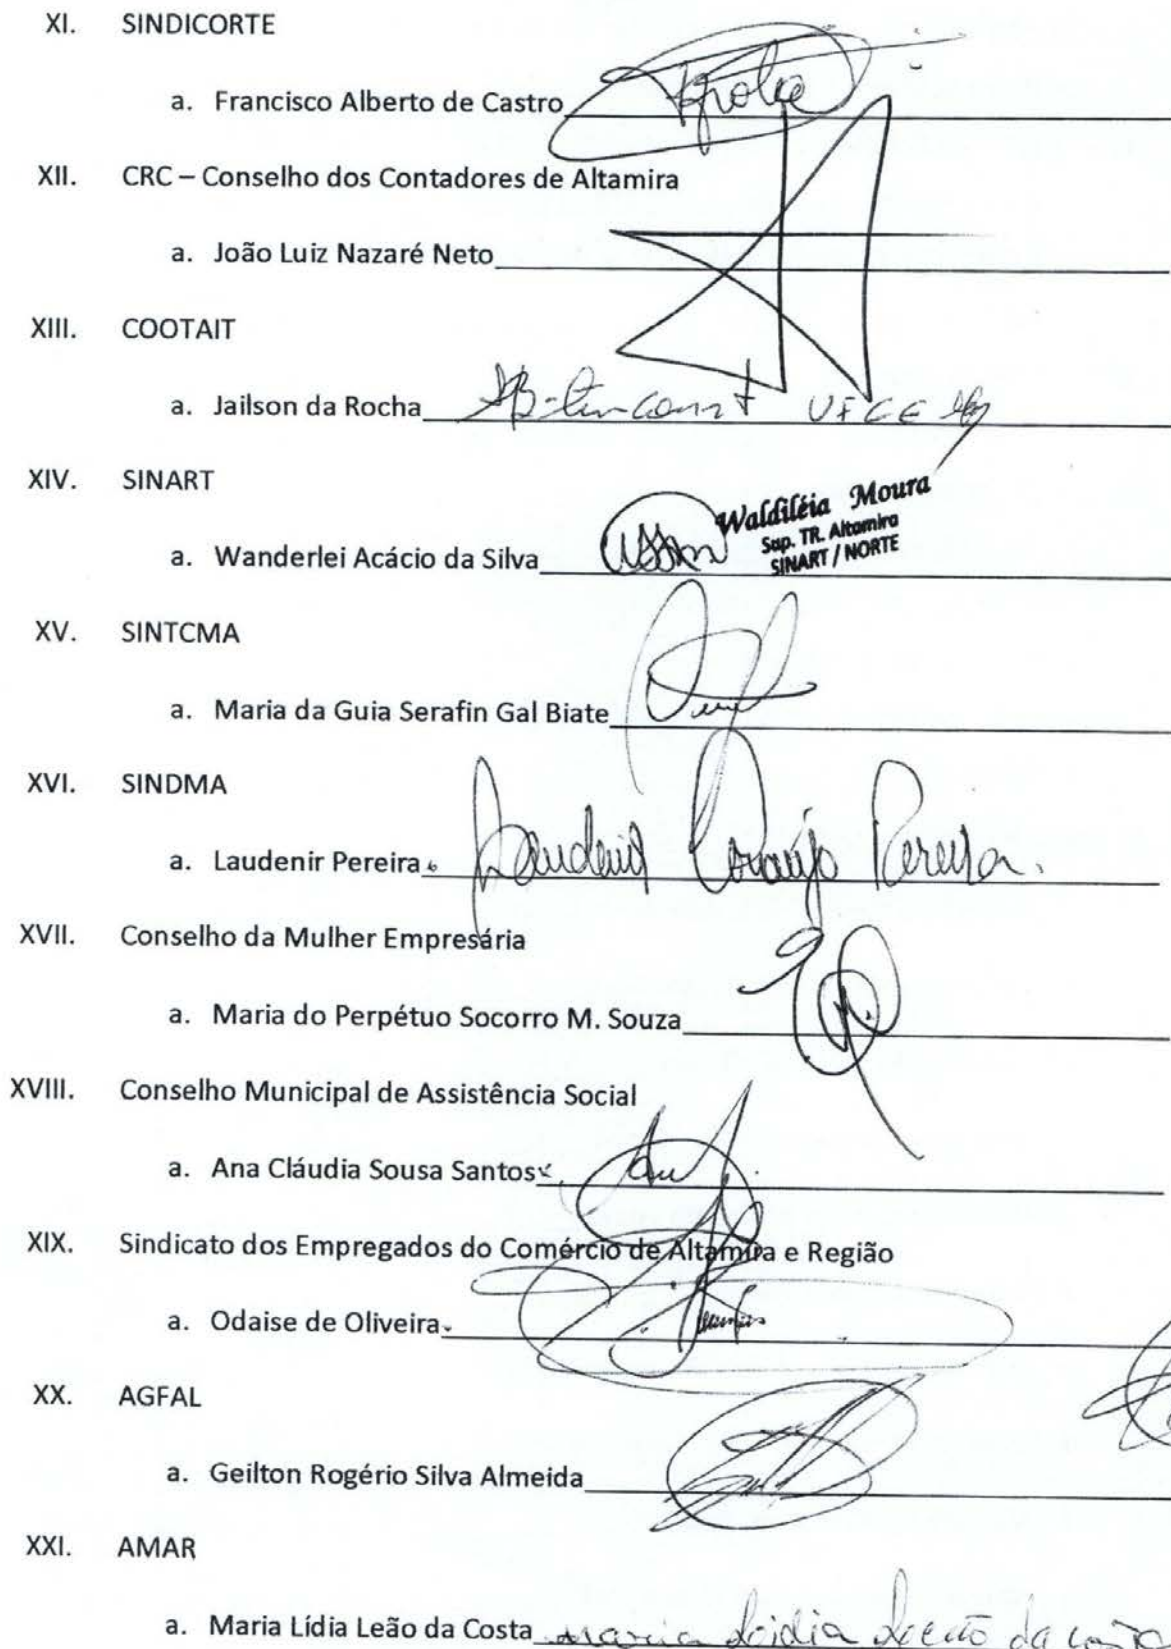 XI. SINDICORTE
a. Francisco Alberto de Castro
XII. CRC – Conselho dos Contadores de Altamira
a. João Luiz Nazaré Neto
XIII. COOTAIT
a. Jailson da Rocha
XIV. SINART
a. Wanderlei Acácio da Silva
Waldiléia Moura
Sup. TR. Altamira
SINART / NORTE
XV. SINTCMA
a. Maria da Guia Serafin Gal Biate
XVI. SINDMA
a. Laudenir Pereira Laudenir Araújo Pereira.
XVII. Conselho da Mulher Empresária
a. Maria do Perpétuo Socorro M. Souza
XVIII. Conselho Municipal de Assistência Social
a. Ana Cláudia Sousa Santos
XIX. Sindicato dos Empregados do Comércio de Altamira e Região
a. Odaise de Oliveira
XX. AGFAL
a. Geilton Rogério Silva Almeida
XXI. AMAR
a. Maria Lídia Leão da Costa Maria Lidia Leão da Costa